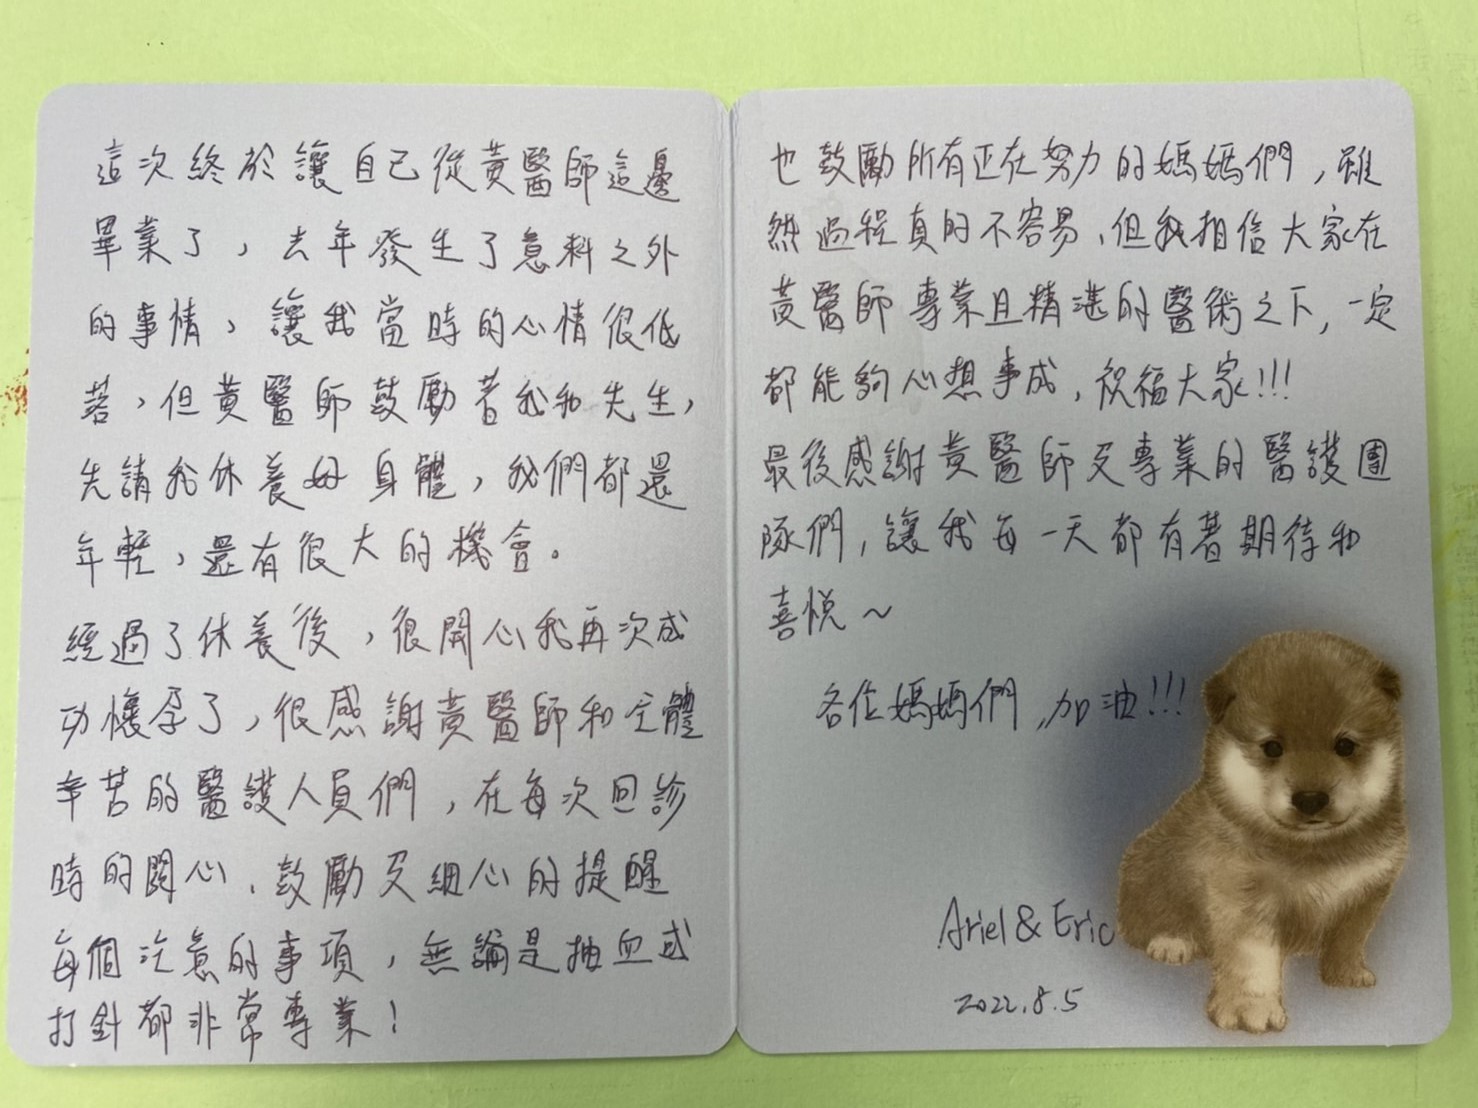 這次終於讓自己從黃醫師這邊
畢業了，去年發生了意料之外
的事情，讓我當時的心情很低
落，但黃醫師鼓勵著我和先生，
先請我休養好身體，我們都還
年輕，還有很大的機會。
經過了休養後，很開心我再次成
功懷孕了，很感謝黃醫師和全體
辛苦的醫護人員們，在每次回診
時的關心、鼓勵及細心的提醒
每個注意的事項，無論是抽血或
打針都非常專業！
也鼓勵所有正在努力的媽媽們，雖
然過程真的不容易，但我相信大家在
黃醫師專業且精湛的醫術之下，一定
都能夠心想事成，祝福大家!!!
最後感謝黃醫師及專業的醫護團
隊們，讓我每一天都有著期待和
喜悅～
各位媽媽們，加油!!!
Ariel & Eric
2022.8.5